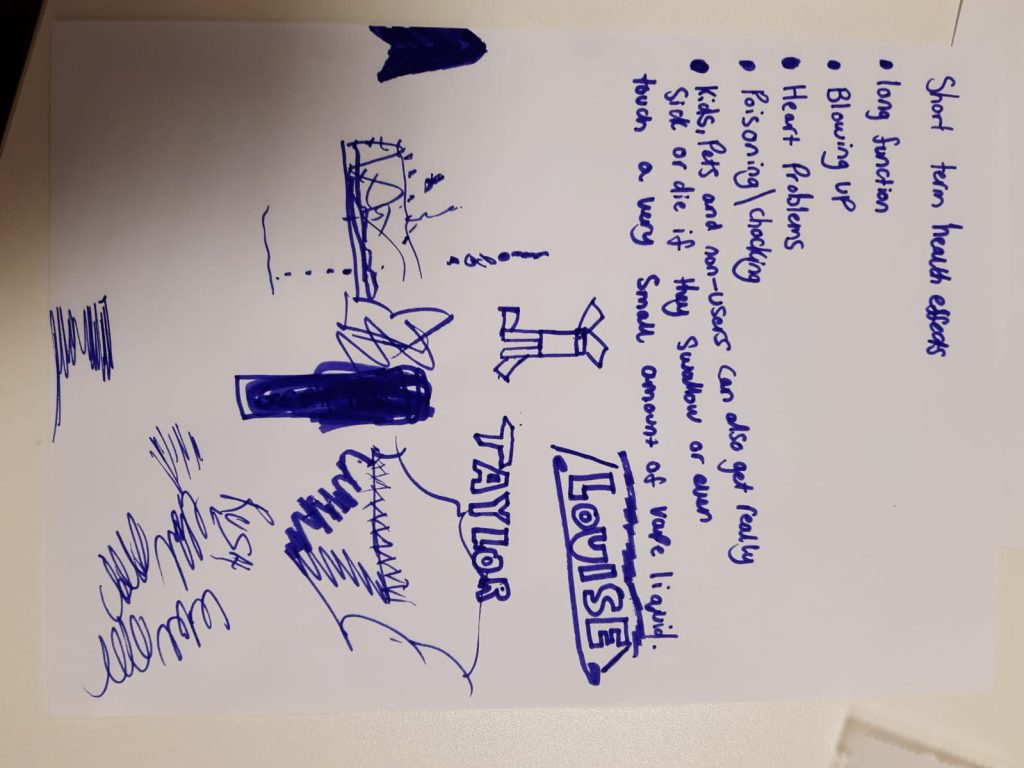 Short term health effects
• long function
• Blowing up
• Heart Problems
• Poisoning\chocking
• Kids, Pets and non-users can also get really
sick or die if they swallow or even
touch a very small amount of vape liquid.
LOUISE
TAYLOR